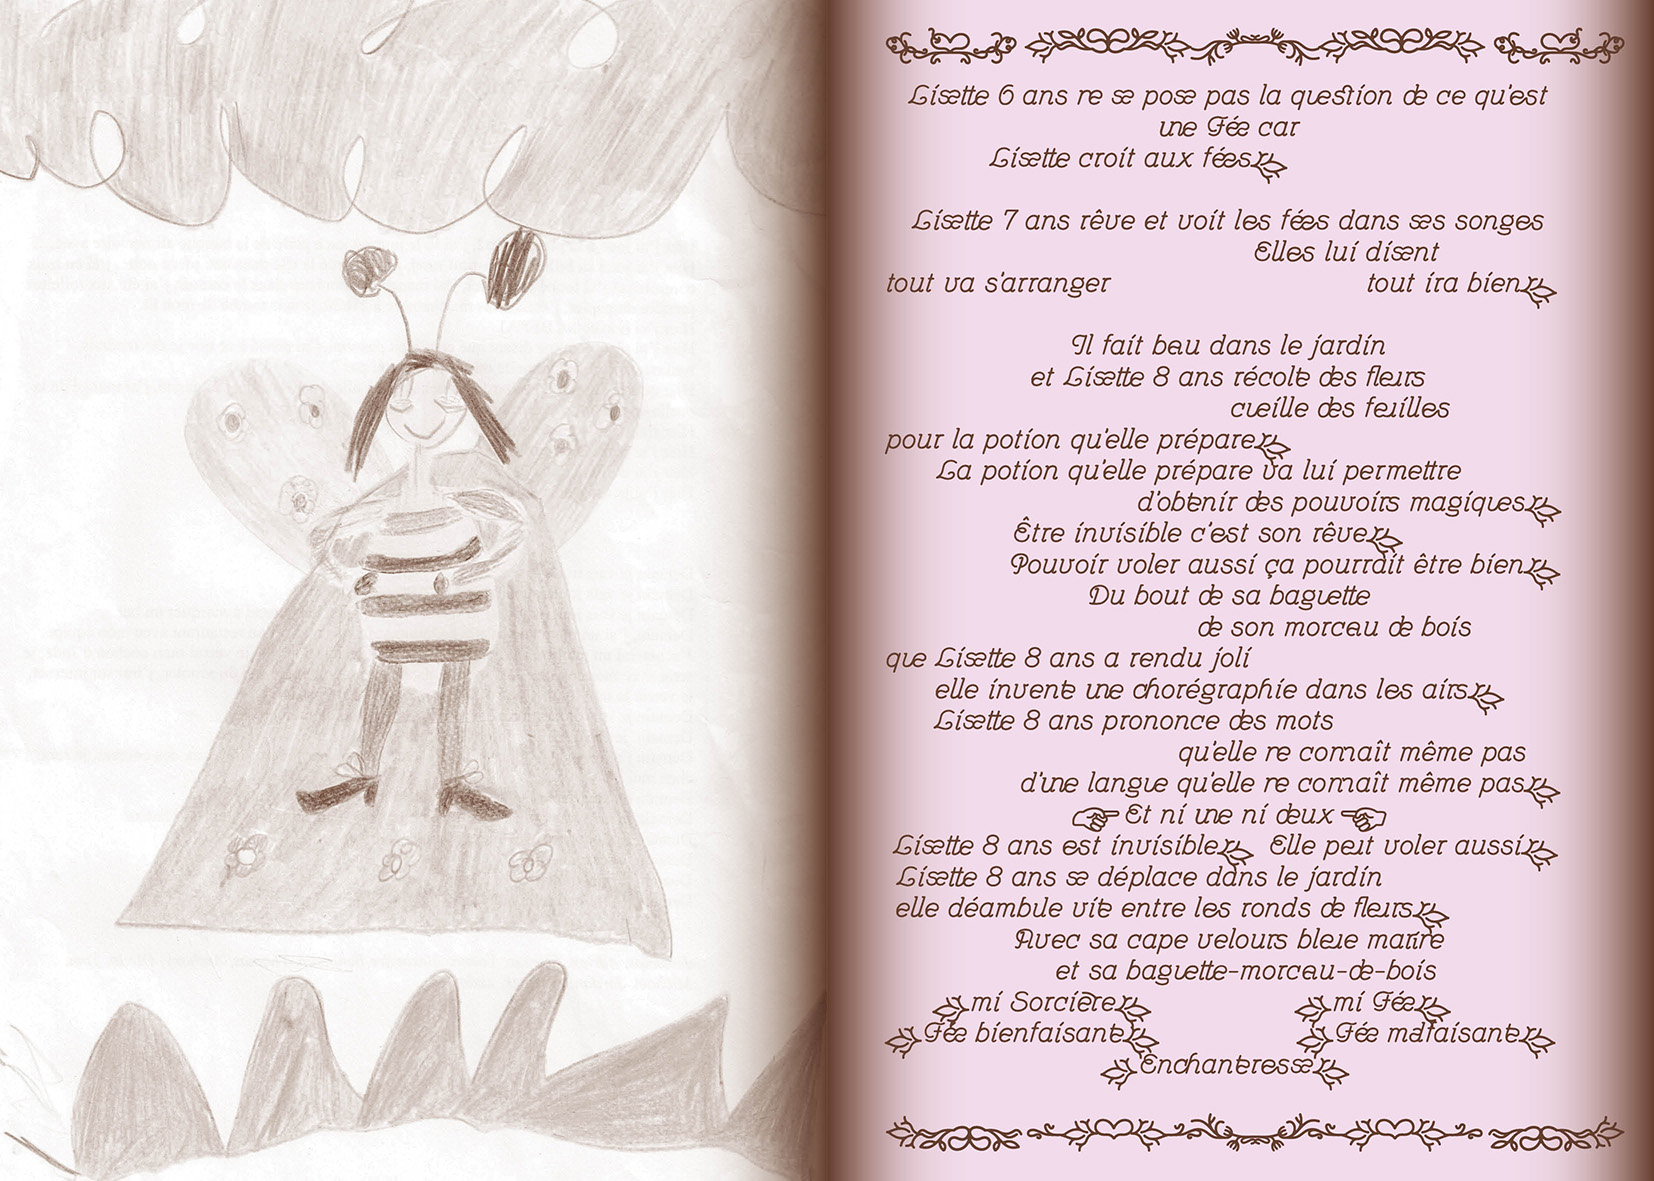 Lisette 6 ans ne se pose pas la question de ce qu'est
une Fée car
Lisette croit aux fées
Lisette 7 ans rêve et voit les fées dans ses songes
Elles lui disent
tout va s'arranger tout ira bien
Il fait beau dans le jardin
et Lisette 8 ans récolte des fleurs
cueille des feuilles
pour la potion qu'elle prépare
La potion qu'elle prépare va lui permettre
d'obtenir des pouvoirs magiques
Être invisible c'est son rêve
Pouvoir voler aussi ça pourrait être bien
Du bout de sa baguette
de son morceau de bois
que Lisette 8 ans a rendu joli
elle invente une chorégraphie dans les airs
Lisette 8 ans prononce des mots
qu'elle ne connaît même pas
d'une langue qu'elle ne connaît même pas
Et ni une ni deux
Lisette 8 ans est invisible Elle peut voler aussi
Lisette 8 ans se déplace dans le jardin
elle déambule vite entre les ronds de fleurs
Avec sa cape velours bleue marine
et sa baguette-morceau-de-bois
mi Sorcière mi Fée
Fée bienfaisante Fée malfaisante
Enchanteresse